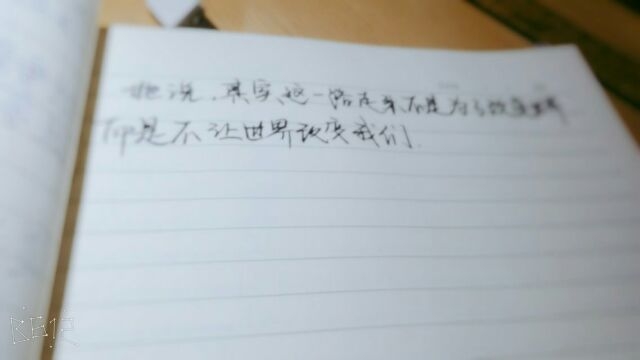 她说,其实这一路走来不是为了改变世界
而是不让世界改变我们.